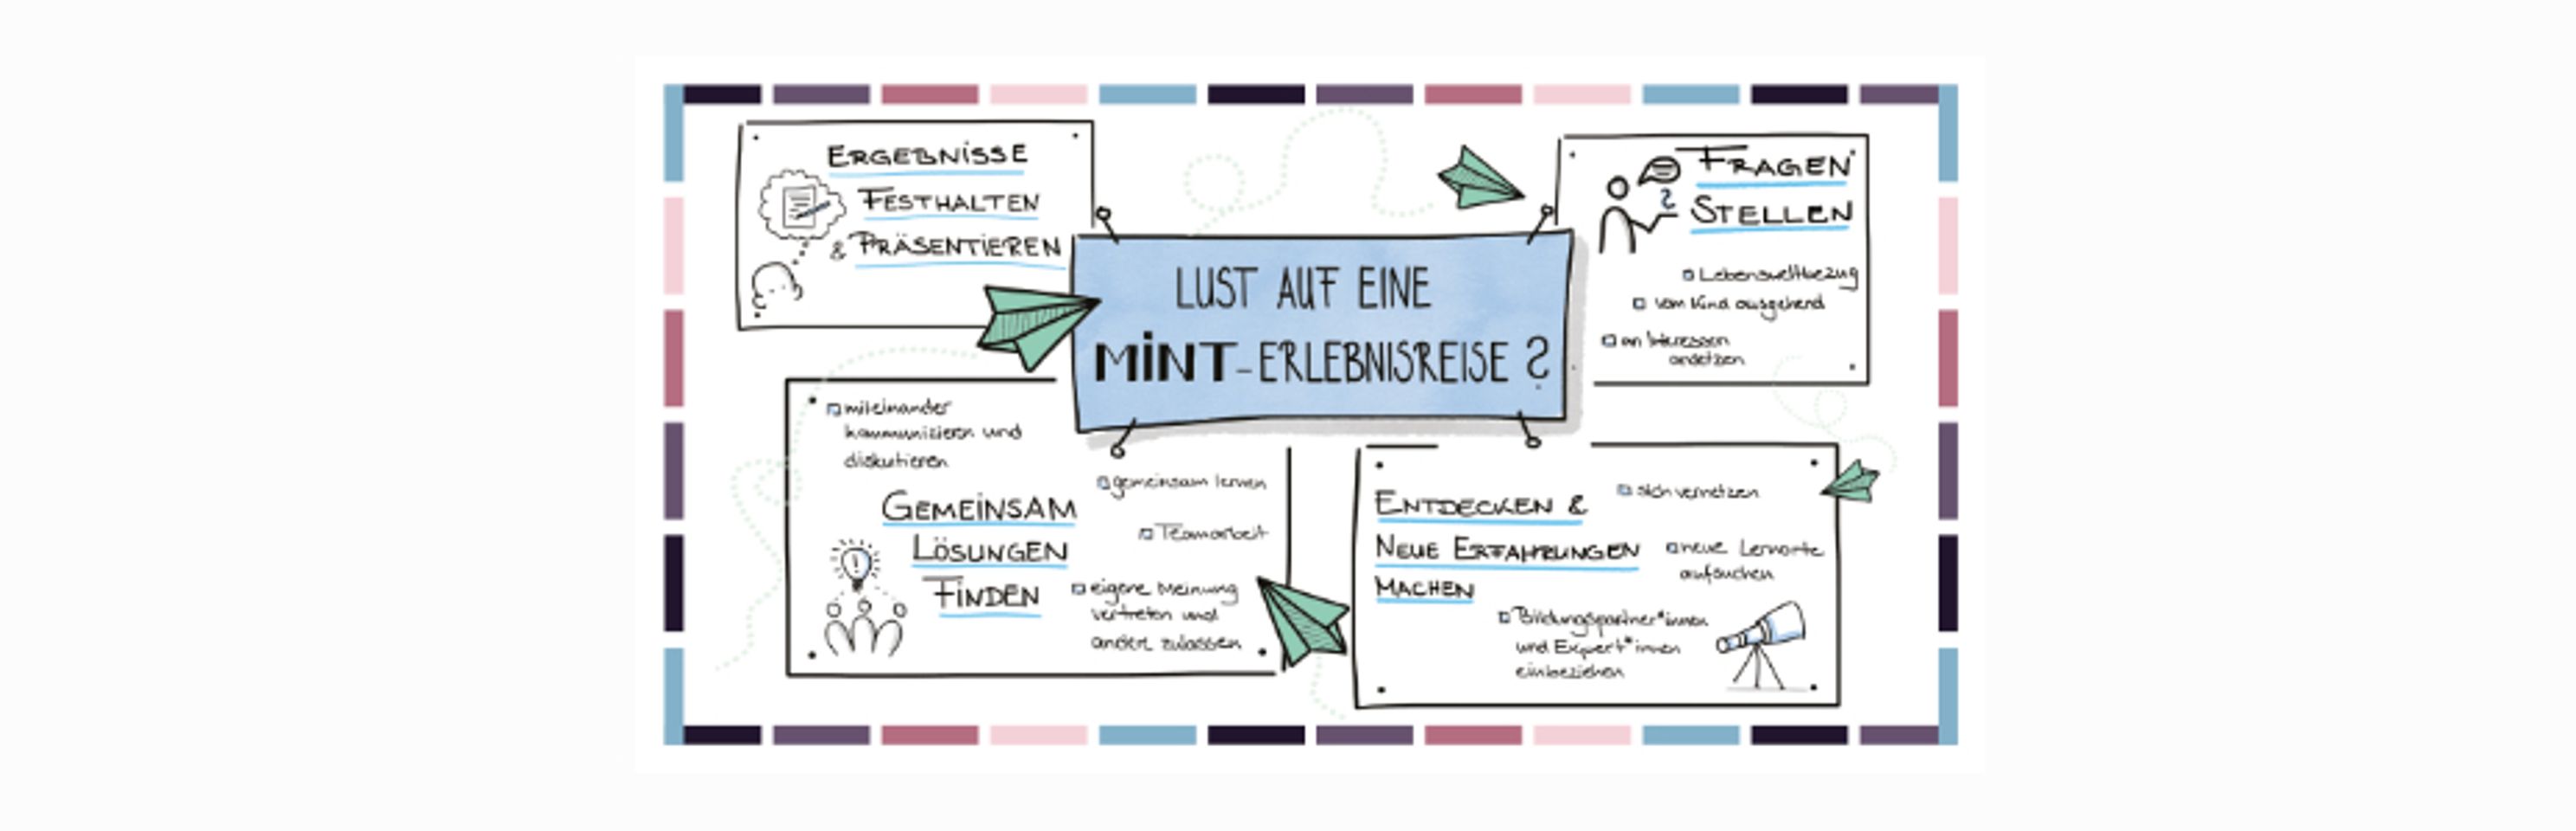 LUST AUF EINE
MINT-ERLEBNISREISE ?
ERGEBNISSE
FESTHALTEN
& PRÄSENTIEREN
FRAGEN
STELLEN
Lebensweltbezug
vom Kind ausgehend
an Interessen
ansetzen
miteinander
kommunizieren und
diskutieren
GEMEINSAM
LÖSUNGEN
FINDEN
gemeinsam lernen
Teamarbeit
eigene Meinung
vertreten und
andere zulassen
ENTDECKEN &
NEUE ERFAHRUNGEN
MACHEN
sich vernetzen
neue Lernorte
aufsuchen
Bildungspartner*innen
und Expert*innen
einbeziehen